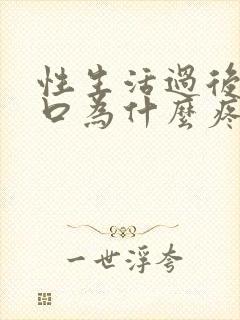 性生活過後
口為什麼疼
一世浮夸